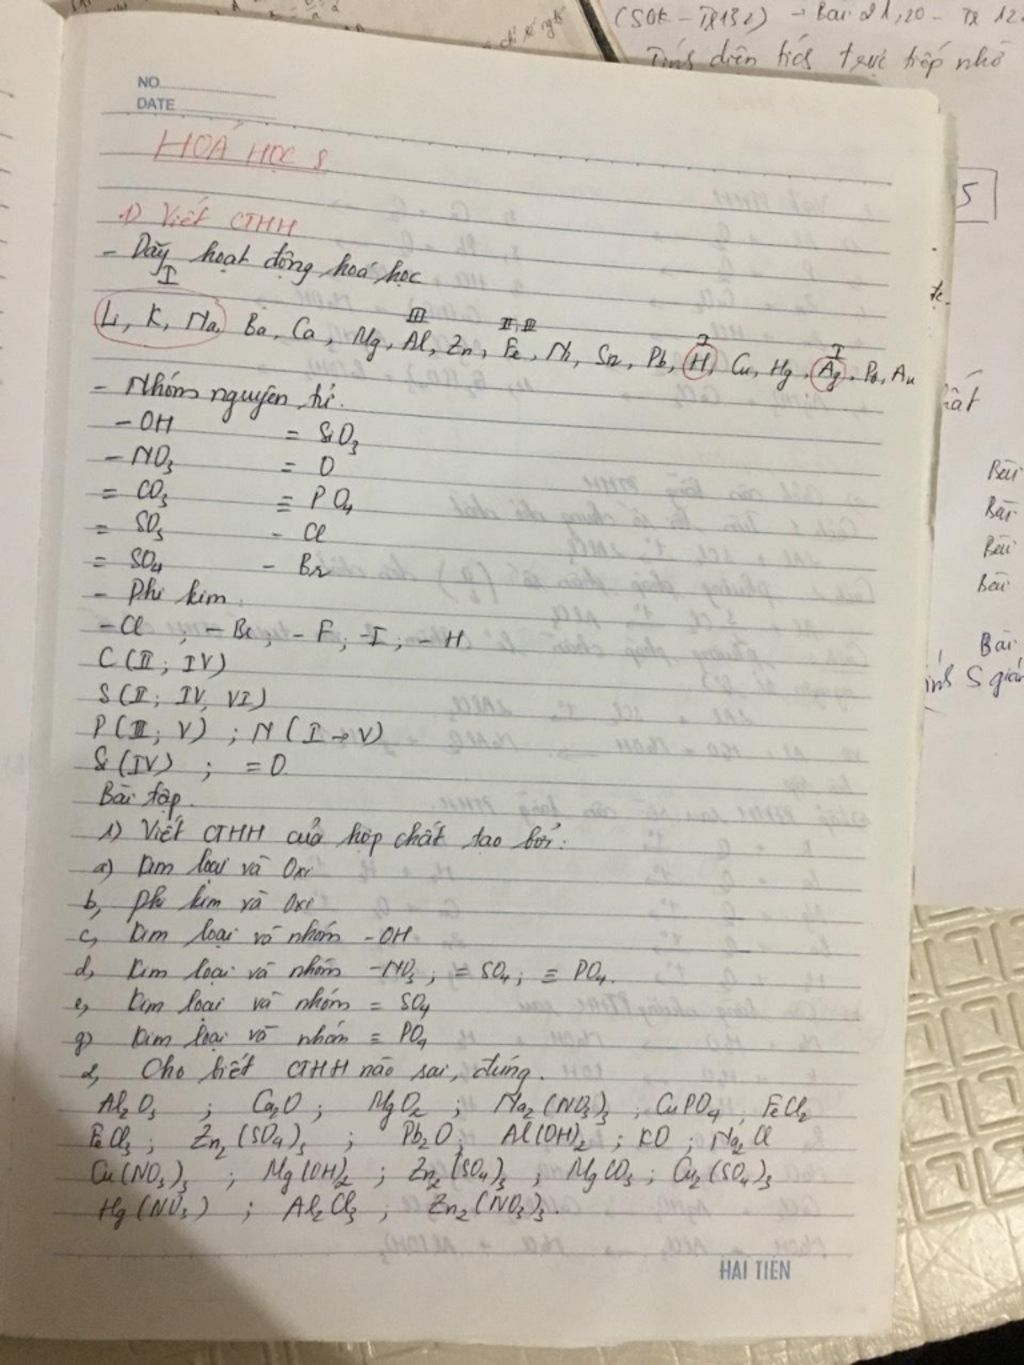 (SGK - Tr132) → Bài 21, 20 - Tr 12
Tính diện tích trực tiếp nhờ
NO.
DATE
HOÁ HỌC 8
1) Viết CTHH
- Dãy hoạt động hoá học
I
III II, III I I
Li, K, Na, Ba, Ca, Mg, Al, Zn, Fe, Ni, Sn, Pb, H, Cu, Hg, Ag, Pt, Au
- Nhóm nguyên tử.
- OH = SiO3
- NO3 = O
= CO3 ≡ PO4
= SO3 - Cl
= SO4 - Br
- Phi kim
- Cl ; - Br, - F, - I ; - H
C (II ; IV)
S (II ; IV, VI)
P (III ; V) ; N (I → V)
Si (IV) ; = O.
Bài tập.
1) Viết CTHH của hợp chất tạo bởi:
a) Kim loại và Oxi
b, Phi kim và Oxi
c, Kim loại và nhóm - OH
d, Kim loại và nhóm - NO3 ; = SO4 ; ≡ PO4.
e, Kim loại và nhóm = SO4
g) Kim loại và nhóm ≡ PO4
2, Cho biết CTHH nào sai, đúng.
Al2O3 ; Ca2O ; MgO2 ; Na2(NO3)3 ; CuPO4, FeCl2
FeCl3 ; Zn2(SO4)3 ; Pb2O, Al(OH)2 ; KO ; Na2Cl
Cu(NO3)3 ; Mg(OH)2 ; Zn2(SO4)3 ; MgCO3 ; Cu2(SO4)3
Hg(NO3) ; Al2Cl3 ; Zn2(NO3)3.
HẢI TIẾN
5
Bài
Bài
Bài
Bài
Bài